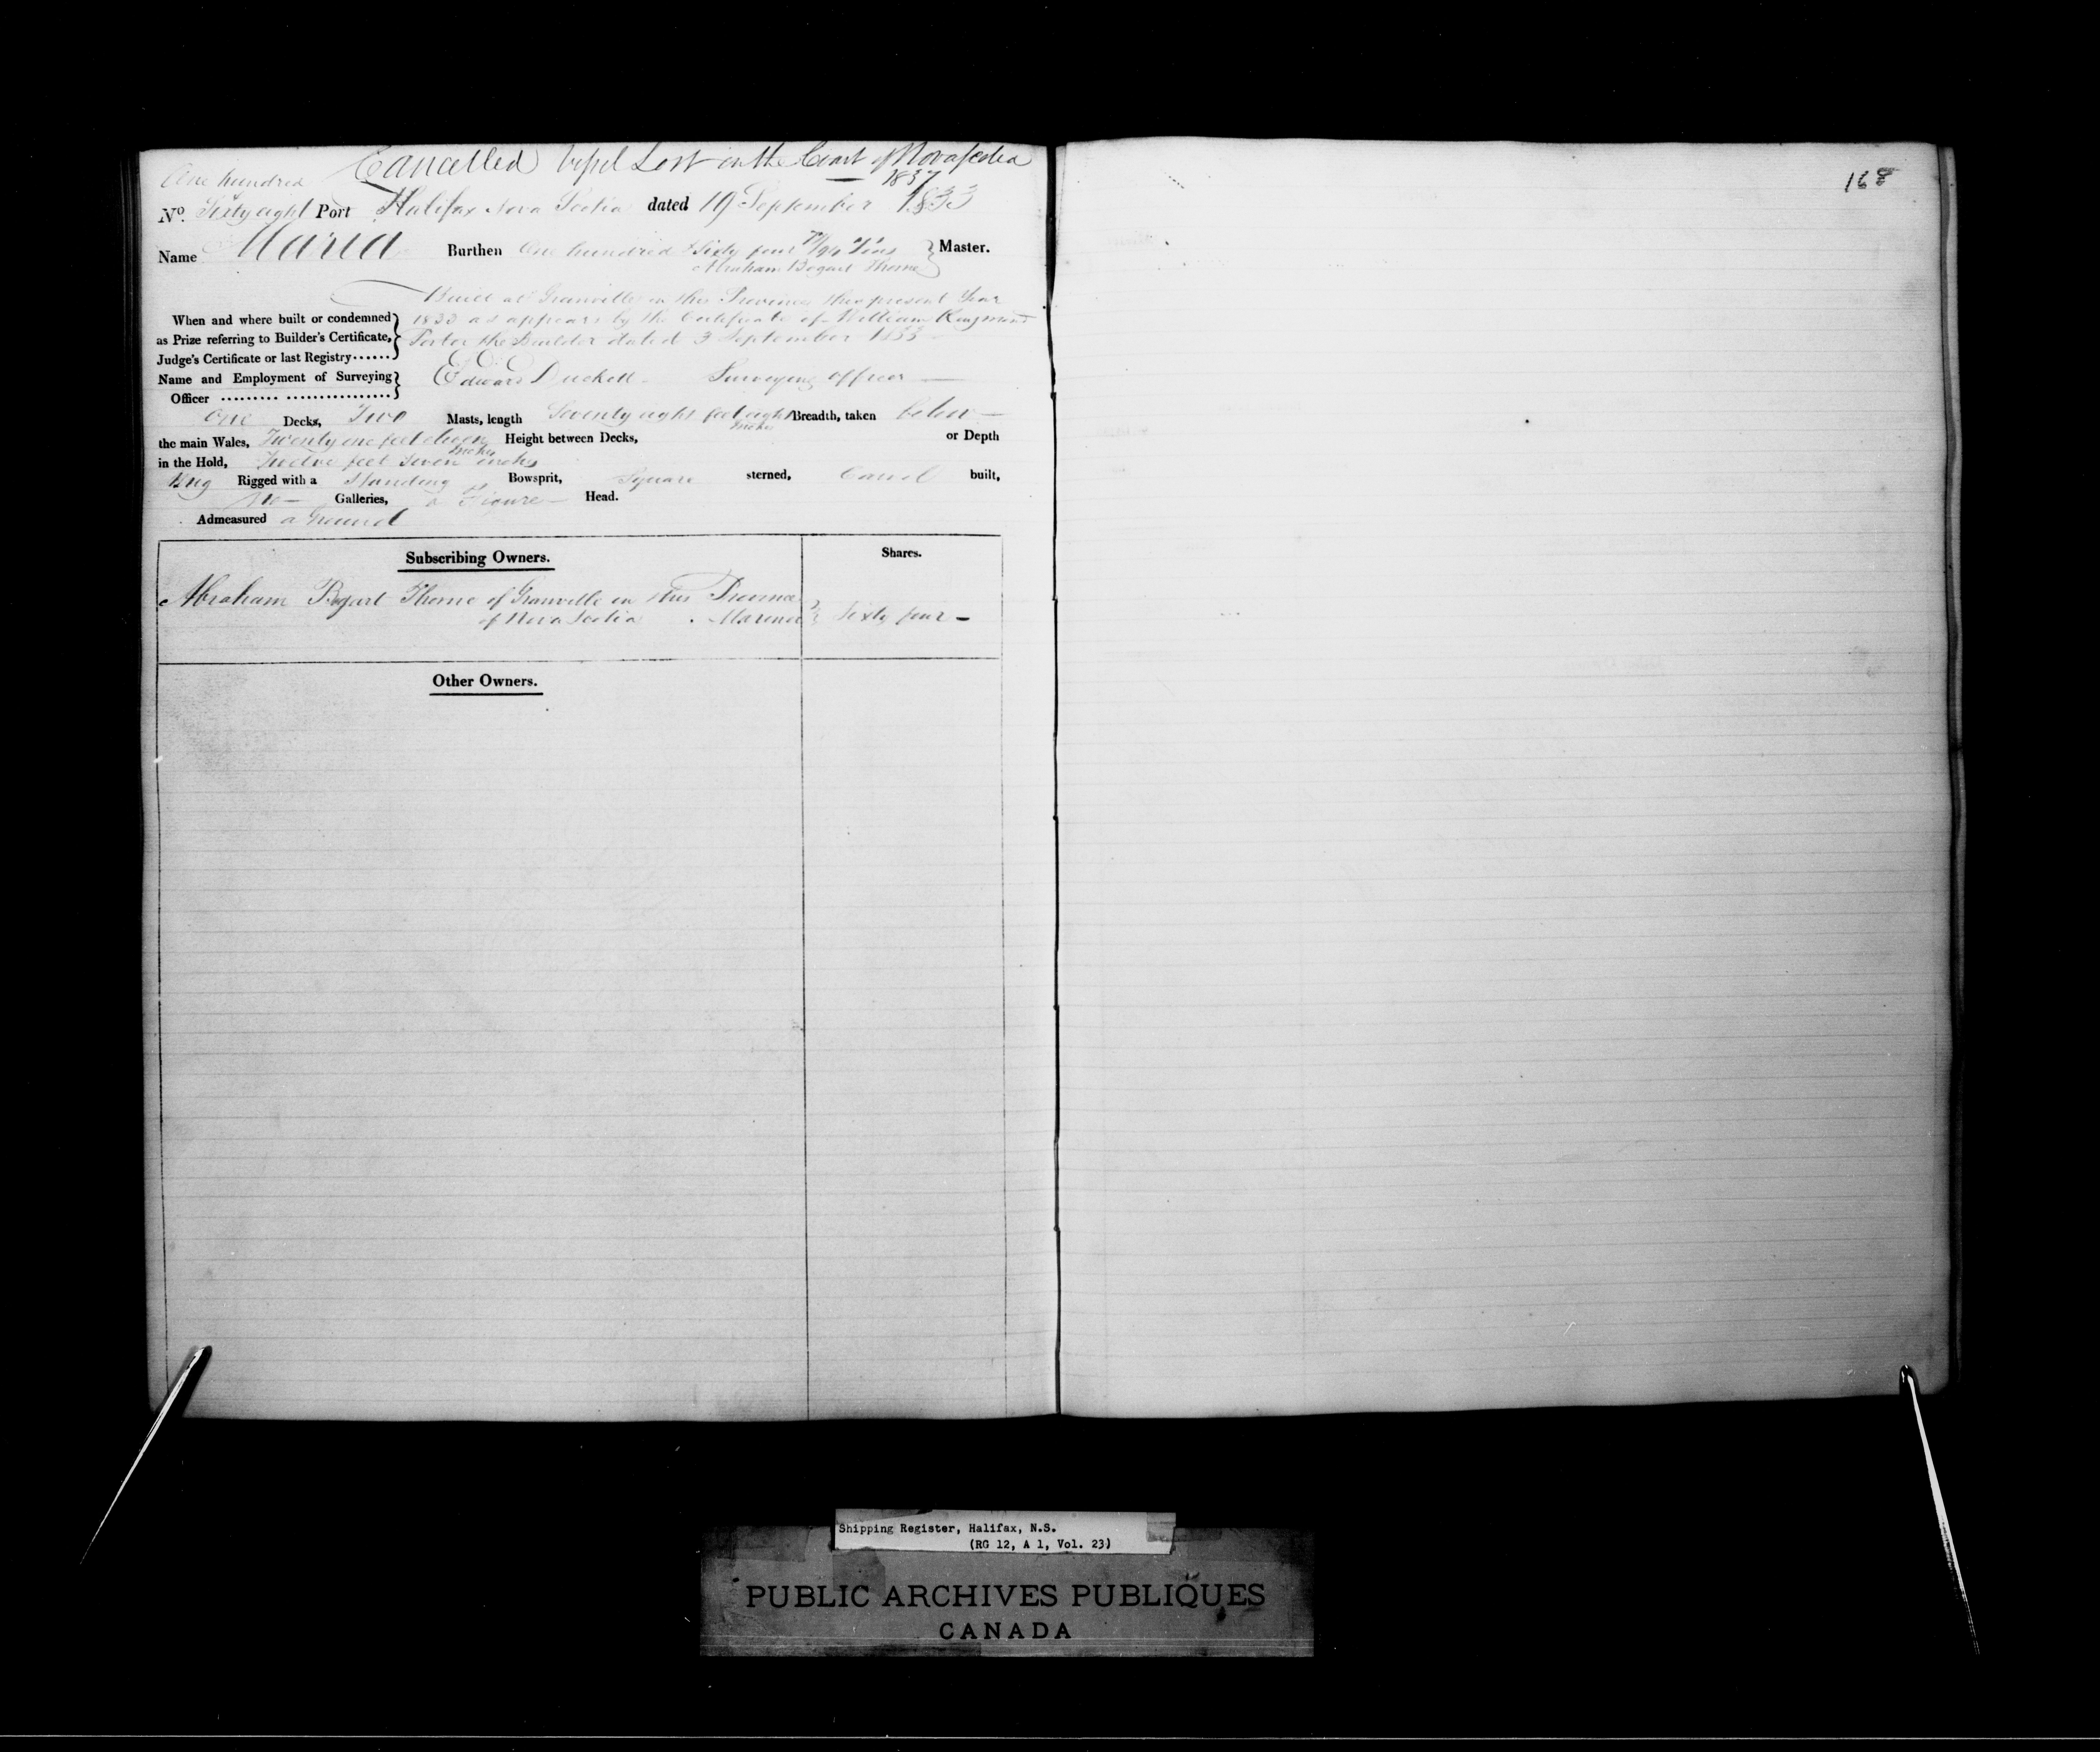 Cancelled Vessel Lost on the Coast of Nova Scotia
1837
One hundred
No. Sixty eight Port Halifax Nova Scotia dated 19 September 1833
Name Maria Burthen One hundred & Sixty four /94 Tons } Master.
Abraham Bogart Thorne
Built at Granville in this Province this present Year
When and where built or condemned } 1833 as appears by the Certificate of William Raymond
as Prize referring to Builder's Certificate, } Porter the Builder dated 3 September 1833
Judge's Certificate or last Registry······ }
Name and Employment of Surveying } Edward Duckett Surveying officer
Officer ········· ················ }
One Decks, Two Masts, length Seventy eight feet eight Breadth, taken below
inches
the main Wales, Twenty one feet eleven Height between Decks, or Depth
inches
in the Hold, Twelve feet seven inches
Brig Rigged with a Standing Bowsprit, Square sterned, Carvel built,
No Galleries, a Figure Head.
Admeasured a Ground
Subscribing Owners. Shares.
Abraham Bogart Thorne of Granville in this Province
of Nova Scotia . Mariner } Sixty four
Other Owners.
168
Shipping Register, Halifax, N.S.
(RG 12, A 1, Vol. 23)
PUBLIC ARCHIVES PUBLIQUES
CANADA